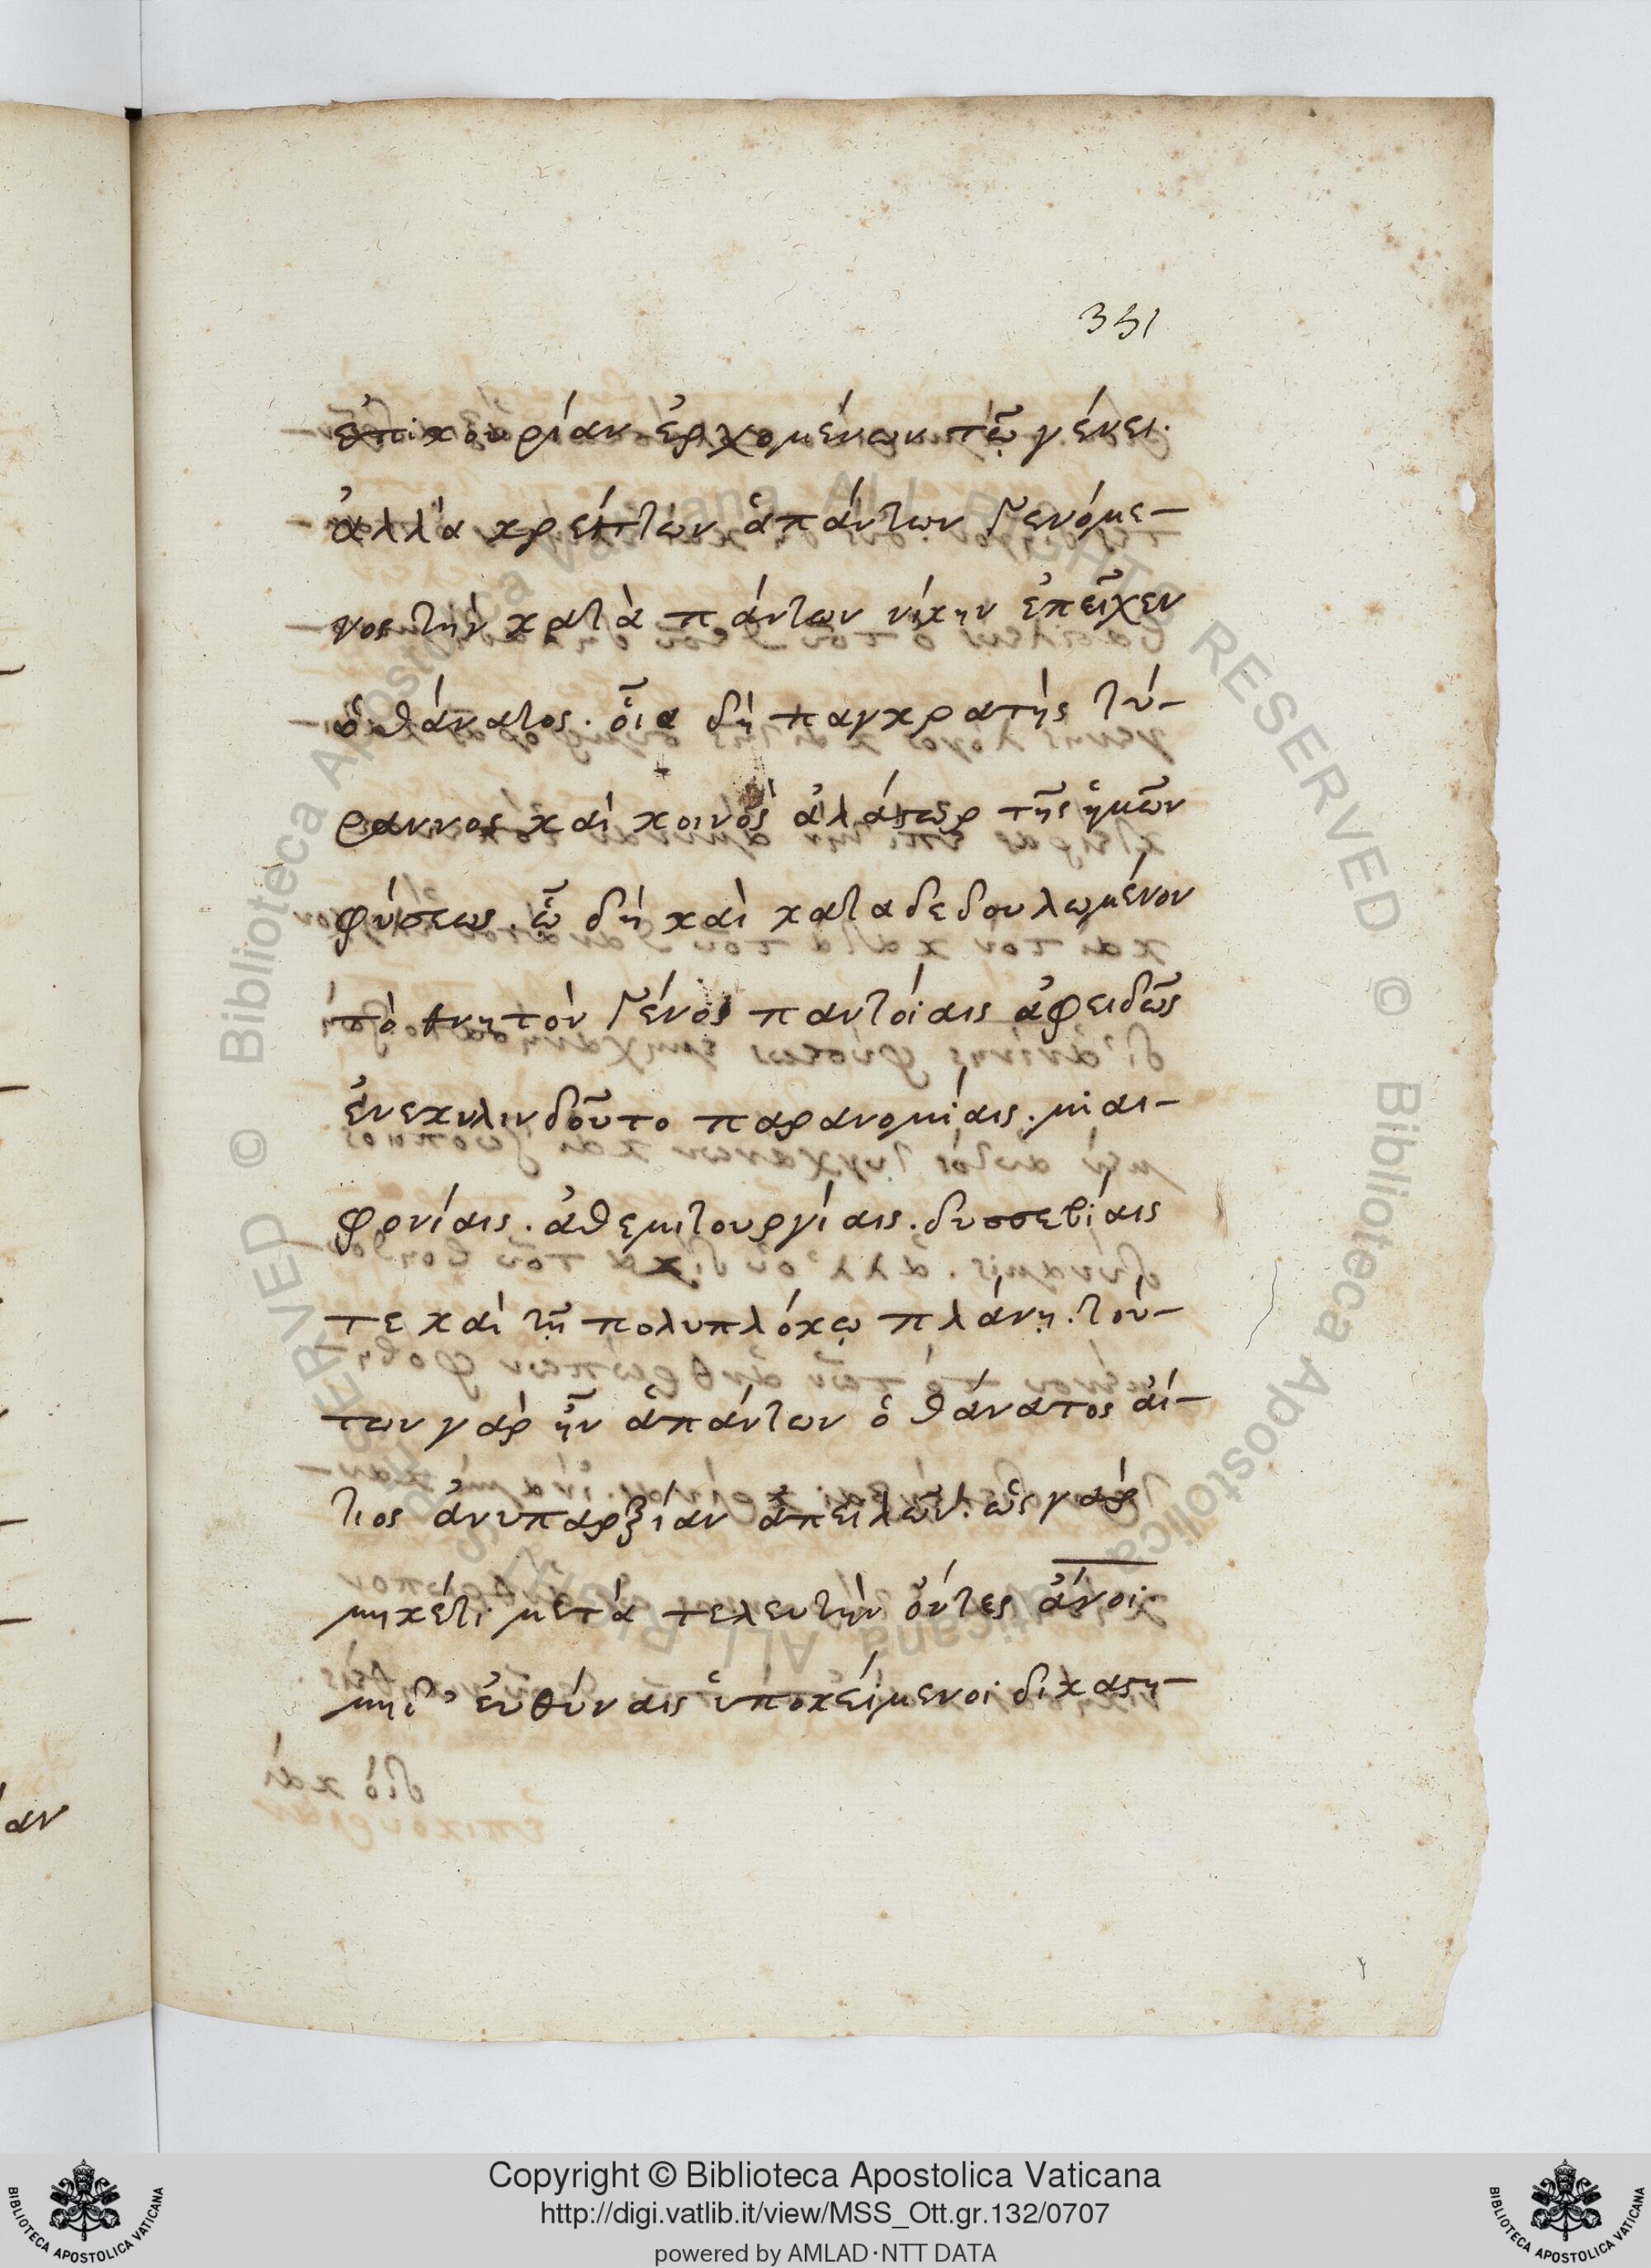 351
ἐπικουρίαν ἐρχομένων τῶ γένει·
ἀλλὰ κρείττων ἁπάντων γενόμε-
νος τὴν κατὰ πάντων νίκην ἐπεῖχεν
ὁ θάνατος. οἷα δὴ παγκρατὴς τύ-
ραννος καὶ κοινὸς ἀλάστωρ τῆς ἡμῶν
φύσεως. ᾧ δὴ καὶ καταδεδουλωμένον
τὸ θνητὸν γένος παντοίαις ἀφειδῶς
ἐνεκυλινδοῦτο παρανομίαις. μιαι-
φονίαις. ἀθεμιτουργίαις. δυσσεβίαις
τε καὶ τῇ πολυπλόκῳ πλάνῃ. τού-
των γὰρ ἦν ἁπάντων ὁ θάνατος αἴ-
τιος ἀνυπαρξίαν ἀπειλῶν. ὡς γὰρ
μηκέτι μετὰ τελευτὴν ὄντες ἄνοι
μηδ' εὐθύναις ὑποκείμενοι δικαστη-
Copyright © Biblioteca Apostolica Vaticana
http://digi.vatlib.it/view/MSS_Ott.gr.132/0707
powered by AMLAD·NTT DATA